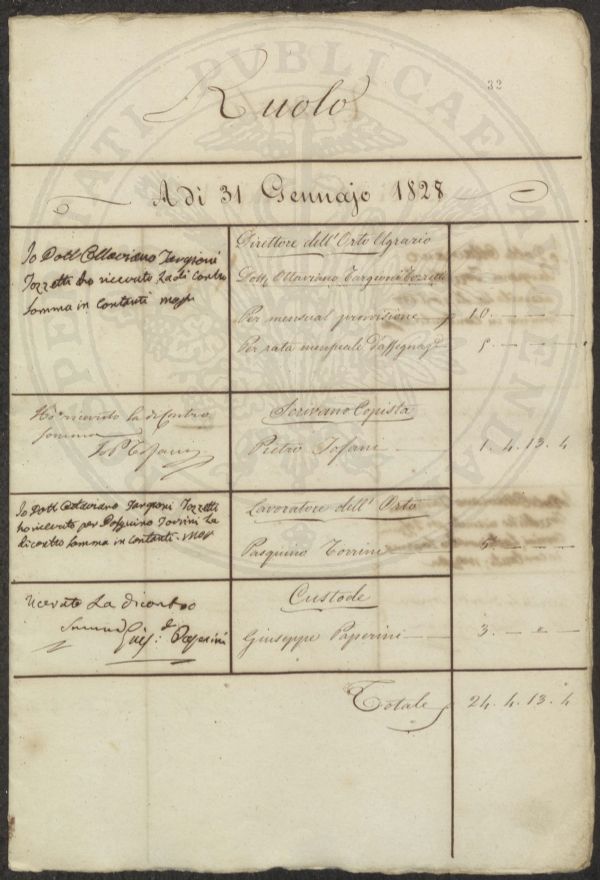 32
Ruolo
Adi 31 Gennajo 1828
Io Dott Ottaviano Targioni
Tozzetti ho ricevuto la di contro
somma in contanti
Direttore dell'Orto Agrario
Dott. Ottaviano Targioni Tozzetti
Per mensual provvisione 10. — — —
Per rata mensuale d'assegnaz. 5. — — —
Ho ricevuto la di contro
somma
Scrivano Copista
Pietro Tofani 1. 4. 13. 4
Io Dott Ottaviano Targioni Tozzetti
ho ricevuto per Pasquino Torrini la
di contro somma in contanti
Lavoratore dell'Orto
Pasquino Torrini 5. — — —
Ricevuto la di contro
Somma
Gius: Paperini
Custode
Giuseppe Paperini 3. — — —
Totale 24. 4. 13. 4
SPERITATI PUBLICAE